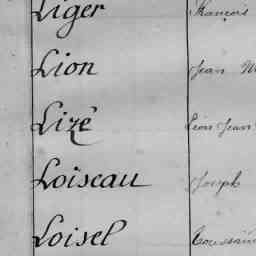 Liger François
Lion Jean
Lizé Léon Jean
Loiseau Joseph
Loisel Toussaint